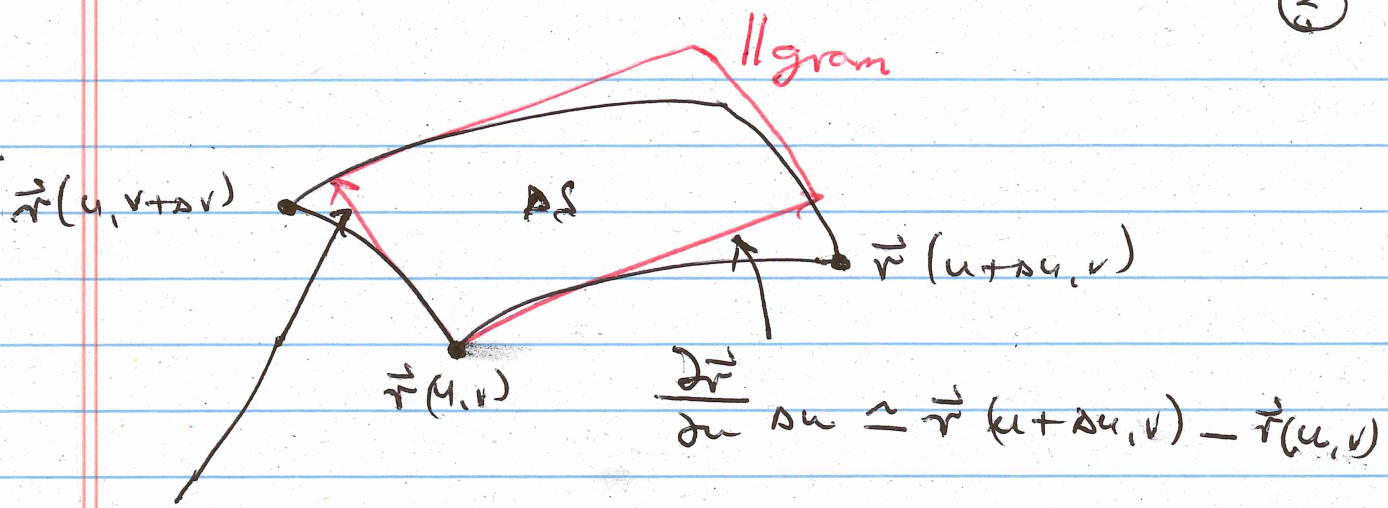 ∥gram
r⃗(u, v+Δv)
ΔS
r⃗(u+Δu, v)
r⃗(u,v)
∂r⃗/∂u Δu ≃ r⃗(u+Δu, v) − r⃗(u,v)